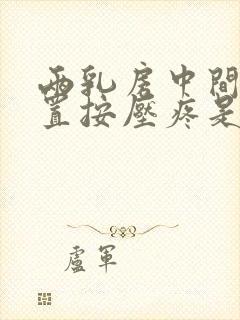 兩乳房中間
置按壓疼是
盧軍